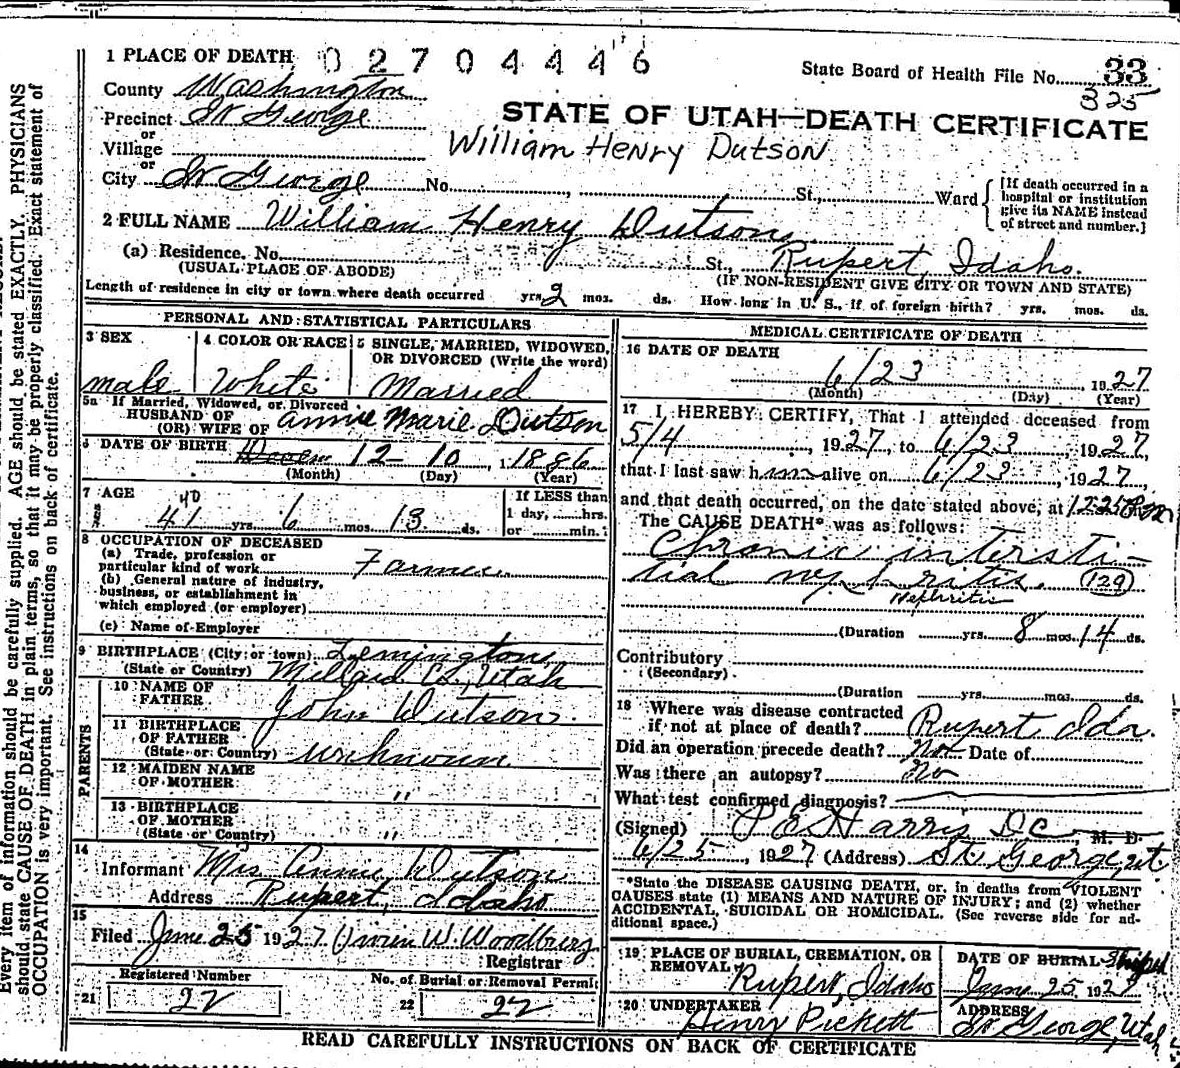 1 PLACE OF DEATH 02704446
State Board of Health File No. 33
325
County Washington
Precinct St George
or
Village
or
City St George No. St., Ward
[If death occurred in a hospital or institution give its NAME instead of street and number.]
STATE OF UTAH—DEATH CERTIFICATE
William Henry Dutson
2 FULL NAME William Henry Dutson
(a) Residence. No. St., Rupert, Idaho.
(USUAL PLACE OF ABODE) (IF NON-RESIDENT GIVE CITY OR TOWN AND STATE)
Length of residence in city or town where death occurred yrs. 2 mos. ds. How long in U. S., if of foreign birth? yrs. mos. ds.
PERSONAL AND STATISTICAL PARTICULARS
3 SEX
male
4 COLOR OR RACE
White
5 SINGLE, MARRIED, WIDOWED, OR DIVORCED (Write the word)
Married
5a If Married, Widowed, or Divorced
HUSBAND OF
(OR) WIFE OF Annie Marie Dutson
6 DATE OF BIRTH 12 10, 1886
(Month) (Day) (Year)
7 AGE
40
41 yrs. 6 mos. 13 ds.
If LESS than
1 day, hrs.
or min.
8 OCCUPATION OF DECEASED
(a) Trade, profession or
particular kind of work Farmer
(b) General nature of industry,
business, or establishment in
which employed (or employer)
(c) Name of Employer
9 BIRTHPLACE (City or town) Lemington
(State or Country) Millard Co, Utah
PARENTS
10 NAME OF
FATHER John Dutson
11 BIRTHPLACE
OF FATHER
(State or Country) unknown
12 MAIDEN NAME
OF MOTHER "
13 BIRTHPLACE
OF MOTHER
(State or Country) "
14
Informant Mrs Annie Dutson
Address Rupert, Idaho
15
Filed June 25 1927 W. Woodbury
Registrar
Registered Number
21 22
No. of Burial or Removal Permit
22 22
MEDICAL CERTIFICATE OF DEATH
16 DATE OF DEATH
6/23, 1927
(Month) (Day) (Year)
17 I HEREBY CERTIFY, That I attended deceased from
5/4, 1927, to 6/23, 1927,
that I last saw him alive on 6/23, 1927,
and that death occurred, on the date stated above, at
The CAUSE DEATH* was as follows:
Chronic intersti-
tial nephratis. (129)
Nephritis
(Duration yrs. 8 mos. 14 ds.
Contributory
(Secondary)
(Duration yrs. mos. ds.
18 Where was disease contracted
if not at place of death? Rupert Ida.
Did an operation precede death? Not Date of
Was there an autopsy? No
What test confirmed diagnosis?
(Signed) E Harris DC M. D.
6/25, 1927 (Address) St. George, Ut.
*State the DISEASE CAUSING DEATH, or, in deaths from VIOLENT
CAUSES state (1) MEANS AND NATURE OF INJURY; and (2) whether
ACCIDENTAL, SUICIDAL OR HOMICIDAL. (See reverse side for ad-
ditional space.)
19 PLACE OF BURIAL, CREMATION, OR
REMOVAL
Rupert, Idaho
DATE OF BURIAL Shiped
June 25 1927
20 UNDERTAKER
Henry Pickett
ADDRESS
St George, Utah
READ CAREFULLY INSTRUCTIONS ON BACK OF CERTIFICATE
Every item of information should be carefully supplied. AGE should be stated EXACTLY. PHYSICIANS
should state CAUSE OF DEATH in plain terms, so that it may be properly classified. Exact statement of
OCCUPATION is very important. See instructions on back of certificate.